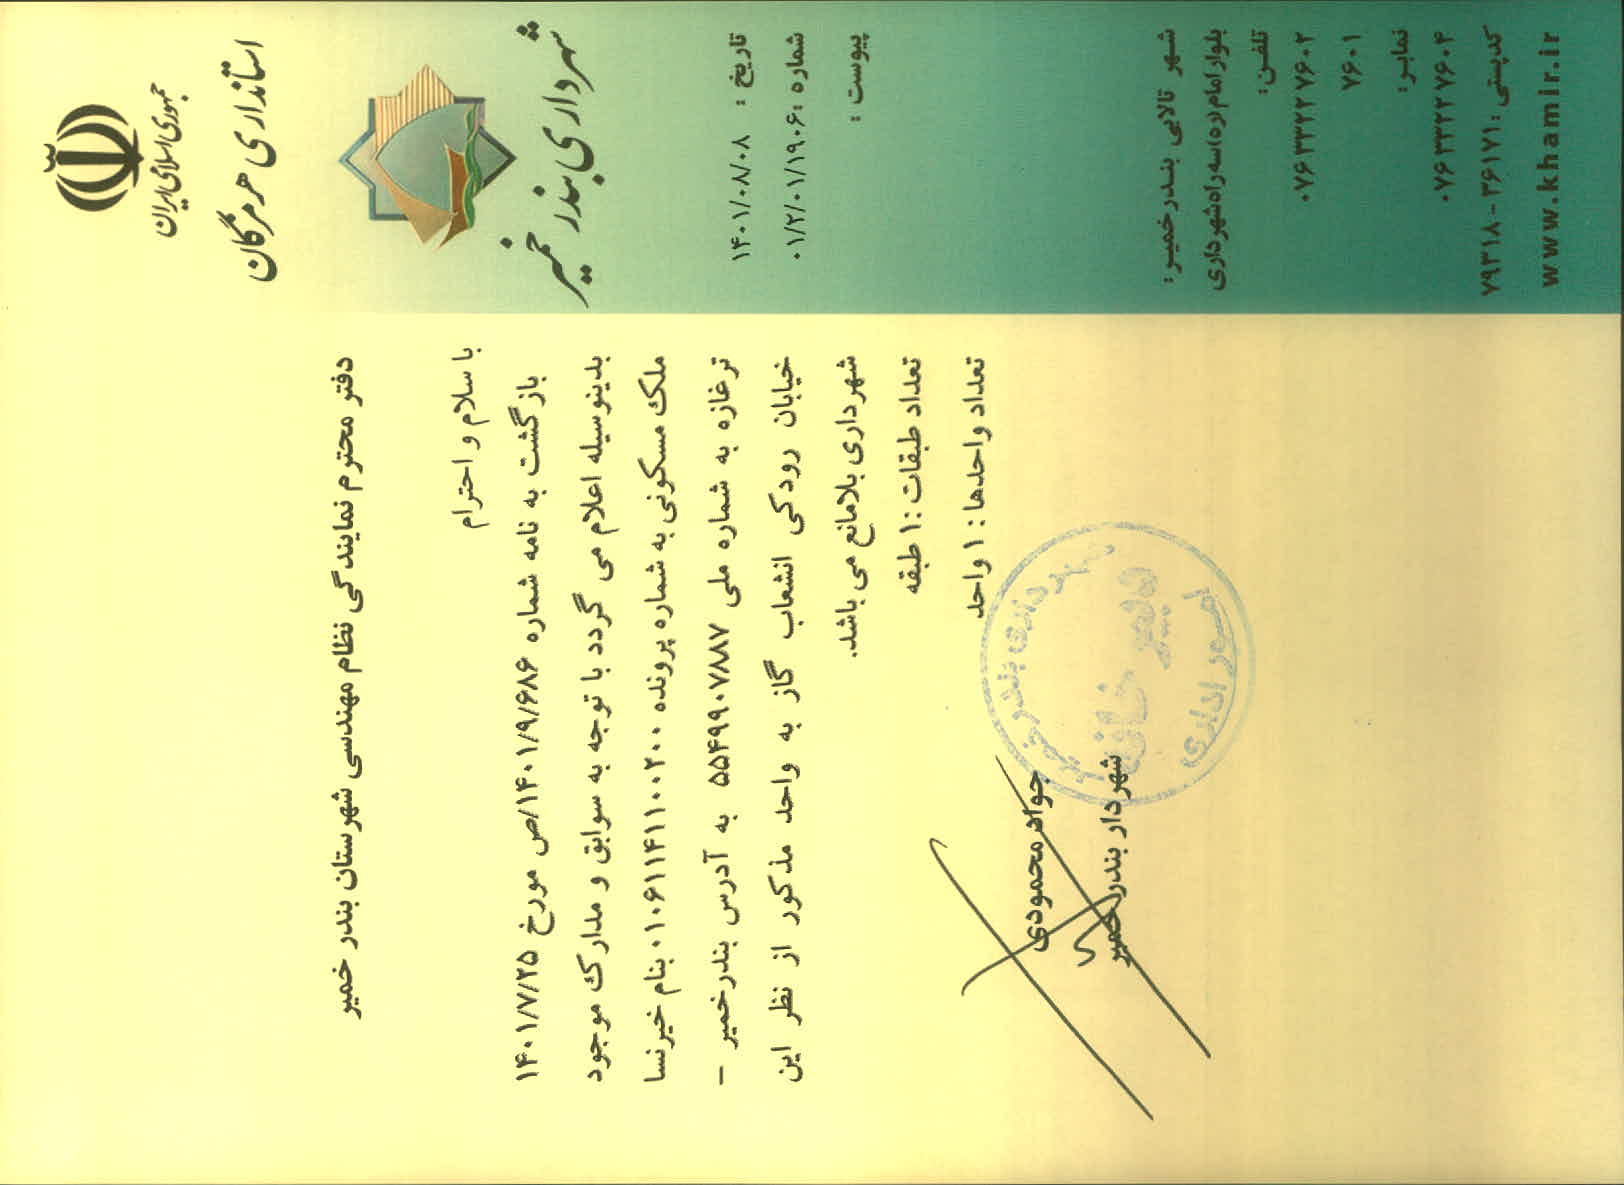 جمهوری اسلامی ایران
استانداری هرمزگان
شهرداری بندر خمیر
تاریخ : ۱۴۰۱/۰۸/۰۸
شماره :۰۱/۲/۰۱/۱۹۰۶
پیوست :
دفتر محترم نمایندگی نظام مهندسی شهرستان بندر خمیر
با سلام و احترام
بازگشت به نامه شماره ۱۴۰۱/۹/۶۸۶/ص مورخ ۱۴۰۱/۷/۲۵
بدینوسیله اعلام می گردد با توجه به سوابق و مدارک موجود
ملک مسکونی به شماره پرونده ۰۱۰۶۱۱۴۱۱۰۰۲۰۰ بنام خیرنسا
ترغازه به شماره ملی ۵۵۴۹۹۰۷۸۸۷ به آدرس بندرخمیر –
خیابان رودکی انشعاب گاز به واحد مذکور از نظر این
شهرداری بلامانع می باشد.
تعداد طبقات :۱ طبقه
تعداد واحدها : ۱ واحد
جواد محمودی
شهردار بندر خمیر
شهرداری بندر خمیر
دبیرخانه
امور اداری
شهر تالابی بندرخمیر:
بلوار امام(ره)سه راه شهرداری
تلفن:
۰۷۶۳۳۲۲۷۶۰۲
۷۶۰۱
نمابر:
۰۷۶۳۳۲۲۷۶۰۴
کدپستی :۳۶۱۷۱-۷۹۳۱۸
www.khamir.ir